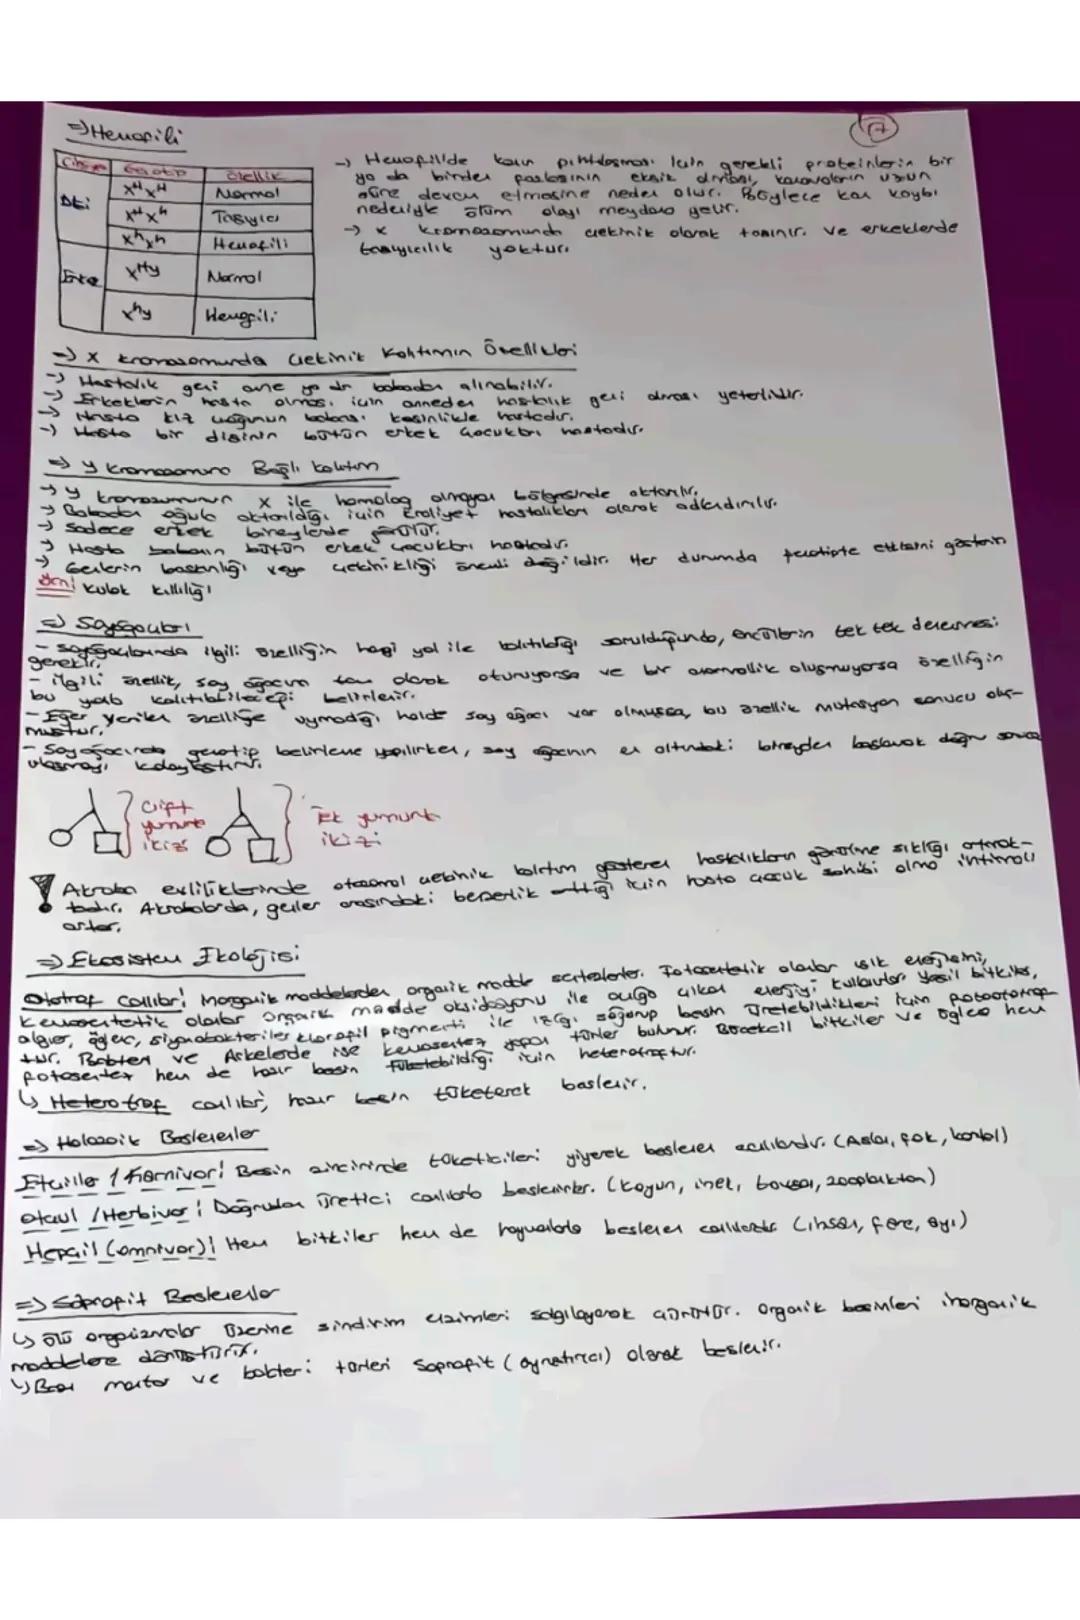 17
⇒ Hemofili
Cinsiyet Genotip Özellik
Dişi X^H X^H Normal
X^H X^h Taşıyıcı
X^h X^h Hemofili
Erkek X^H y Normal
X^h y Hemofili
→ Hemofili'de kanın pıhtılaşması için gerekli proteinlerin bir
ya da birden fazlasının eksik olması, kanamaların uzun
süre devam etmesine neden olur. Böylece kan kaybı
nedeniyle ölüm olayı meydana gelir.
→ X kromozomunda çekinik olarak taşınır. Ve erkeklerde
taşıyıcılık yoktur.
⇒ X kromozomunda Çekinik Kalıtımın Özellikleri
→ Hastalık geni anne ya da babadan alınabilir.
→ Erkeklerin hasta olması için anneden hastalık geni alması yeterlidir.
→ Hasta kız çocuğunun babası kesinlikle hastadır.
→ Hasta bir dişinin bütün erkek çocukları hastadır.
⇒ y kromozomuna Bağlı kalıtım
→ y kromozomunun X ile homolog olmayan bölgesinde aktarılır.
→ Babadan oğula aktarıldığı için kraliyet hastalıkları olarak adlandırılır.
→ Sadece erkek bireylerde görülür.
→ Hasta babanın bütün erkek çocukları hastadır.
→ Genlerin baskınlığı veya çekinikliği önemli değildir. Her durumda fenotipte etkisini gösterir
kulak kıllılığı
⇒ Soyağaçları
- soyağaçlarında ilgili özelliğin hangi yol ile kalıtıldığı sorulduğunda, öncüllerin tek tek denenmesi
gerekir.
- ilgili özellik, soy ağacına tam olarak oturuyorsa ve bir anormallik oluşmuyorsa özelliğin
bu yolla kalıtılabileceği belirlenir.
- Eğer verilen özelliğe uymadığı halde soy ağacı var olmuşsa, bu özellik mutasyon sonucu oluş-
muştur.
- Soyağacında genotip belirleme yapılırken, soy ağacının en altındaki bireyden başlamak doğru sonuca
ulaşmayı kolaylaştırır.
Çift
yumurta
ikizi
Tek yumurta
ikizi
! Akraba evliliklerinde otozomal çekinik kalıtım gösteren hastalıkların görülme sıklığı artmak-
tadır. Akrabalarda, genler arasındaki benzerlik arttığı için hasta çocuk sahibi olma ihtimali
artar.
⇒ Ekosistem Ekolojisi
Ototrof canlılar; İnorganik maddelerden organik madde sentezlerler. Fotosentetik olanlar ışık enerjisini,
kemosentetik olanlar organik madde oksidasyonu ile açığa çıkan enerjiyi kullanırlar. Yeşil bitkiler,
algler, öglena, siyanobakteriler klorofil pigmenti ile ışığı soğurup besin üretebildikleri için fotoototrof-
tur. Bakteri ve Arkelerde ise kemosentez yapan türler bulunur. Böcekçil bitkiler ve öglena hem
fotosentez hem de hazır besin tüketebildiği için heterotroftur.
↳ Heterotrof canlılar; hazır besin tüketerek beslenir.
⇒ Holozoik Beslenenler
Etçiller / Karnivor; Besin zincirinde tüketicileri yiyerek beslenen canlılardır. (Aslan, fok, kartal)
Otçul / Herbivor; Doğrudan üretici canlılarla beslenirler. (koyun, inek, tavşan, zooplankton)
Hepçil (omnivor); Hem bitkiler hem de hayvanlarla beslenen canlılardır (insan, fare, ayı)
⇒ Saprofit Beslenenler
↳ Ölü organizmalar üzerine sindirim enzimleri salgılayarak çürütür. Organik besinleri inorganik
maddelere dönüştürür.
↳ Bazı mantar ve bakteri türleri Saprofit (ayrıştırıcı) olarak beslenir.